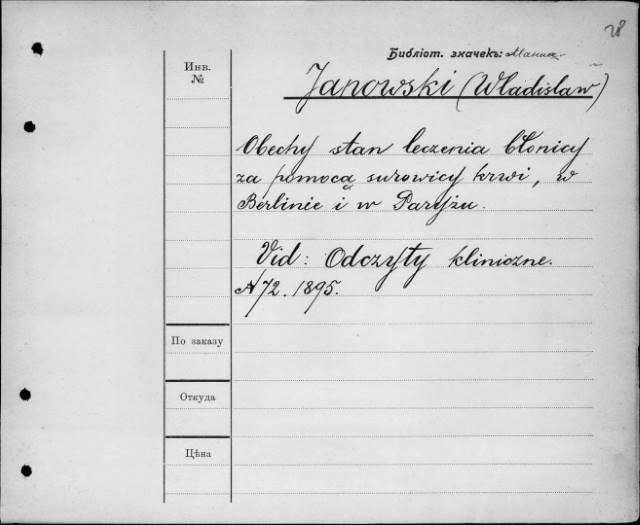 28
Библіот. значекъ:
Инв.
№
Janowski (Władisław)
Obechy stan leczenia błonicy
za pomocą surowicy krwi, w
Berlinie i w Paryżu.
Vid: Odczyty kliniczne.
№ 72. 1895.
По заказу
Откуда
Цѣна